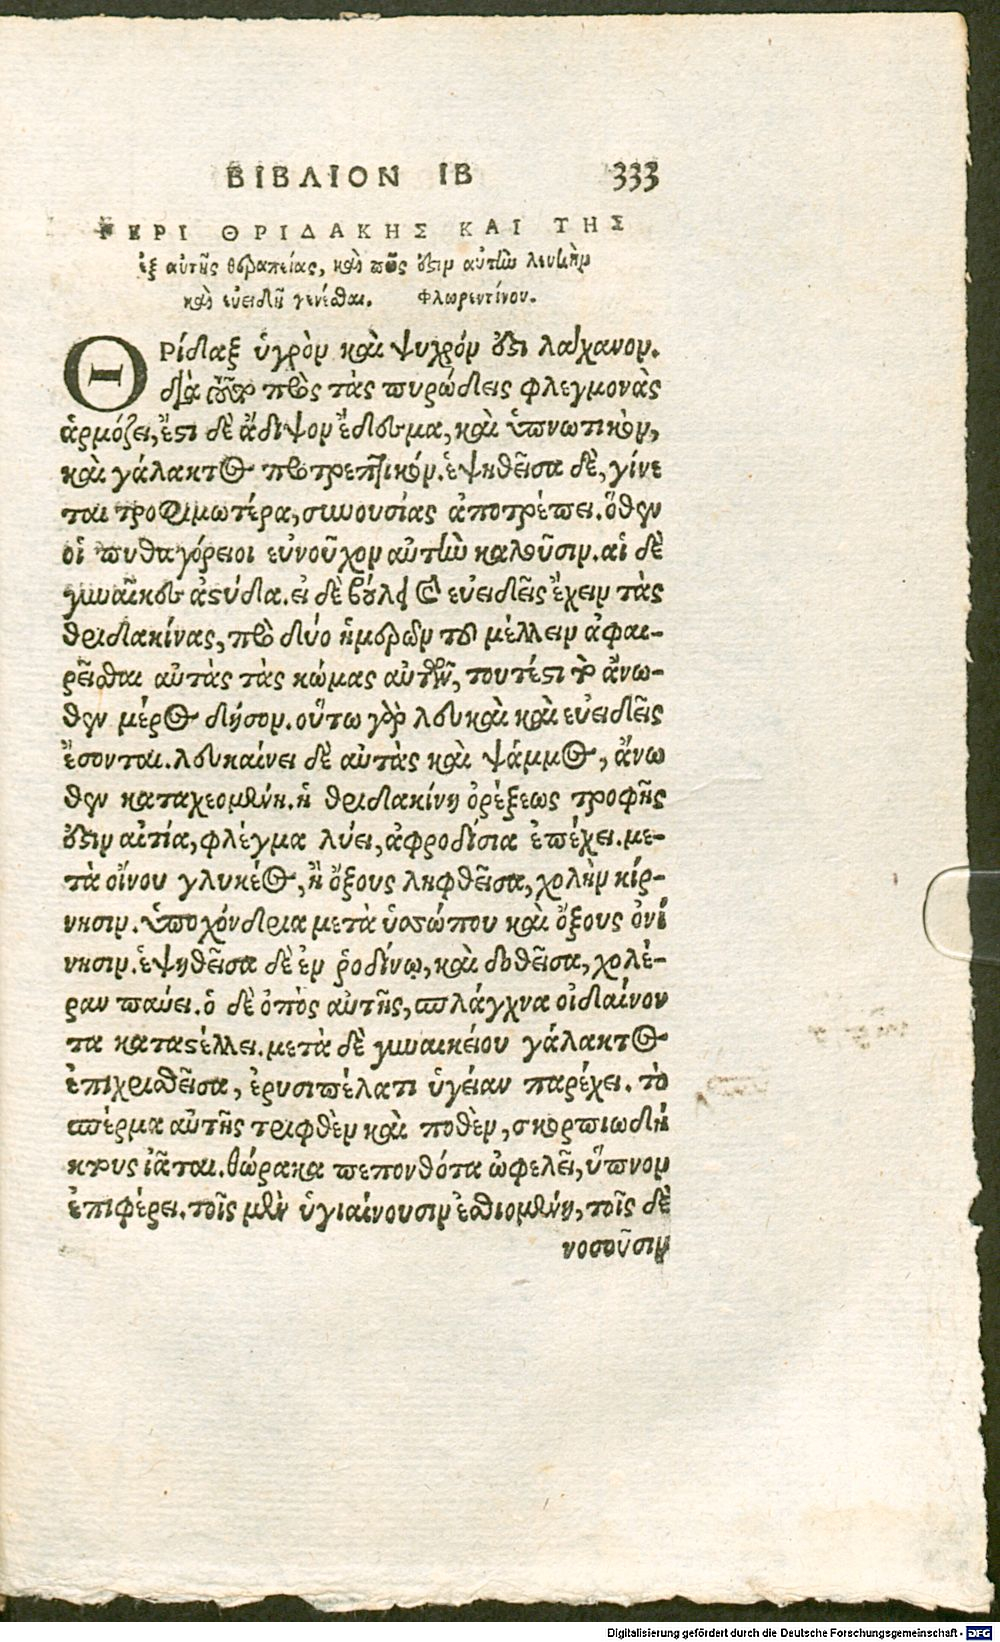 ΒΙΒΛΙΟΝ ΙΒ 333
ΠΕΡΙ ΘΡΙΔΑΚΗΣ ΚΑΙ ΤΗΣ
ἐξ αὐτῆς θεραπείας, καὶ πῶς ἔστιν αὐτὴν λευκὴν
καὶ εὐειδῆ γενέσθαι. Φλωρεντίνου.
ΘΡίδαξ ὑγρὸν καὶ ψυχρόν ἐστι λάχανον.
διὰ τοῦτο πρὸς τὰς πυρώδεις φλεγμονὰς
ἁρμόζει, ἔστι δὲ ἄδιψον ἔδεσμα, καὶ ὑπνωτικὸν,
καὶ γάλακτος προτρεπτικόν. ἑψηθεῖσα δὲ, γίνε
ται τροφιμωτέρα, συνουσίας ἀποτρέπει. ὅθεν
οἱ πυθαγόρειοι εὐνοῦχον αὐτὴν καλοῦσιν. αἱ δὲ
γυναῖκες ἀστύδα. εἰ δὲ βούλει καὶ εὐειδεῖς ἔχειν τὰς
θριδακίνας, πρὸ δύο ἡμερῶν τοῦ μέλλειν ἀφαι-
ρεῖσθαι αὐτὰς τὰς κώμας αὐτῶν, τουτέστι τὸ ἄνω-
θεν μέρος δῆσον. οὕτω γὰρ λευκαὶ καὶ εὐειδεῖς
ἔσονται. λευκαίνει δὲ αὐτὰς καὶ ψάμμος, ἄνω
θεν καταχεομένη. ἡ θριδακίνη ὀρέξεως τροφῆς
ἔστιν αἰτία, φλέγμα λύει, ἀφροδίσια ἐπέχει. με-
τὰ οἴνου γλυκέος, ἢ ὄξους ληφθεῖσα, χολὴν κίρ-
νησιν. ὑποχόνδρια μετὰ ὑσσώπου καὶ ὄξους ὀνί
νησιν. ἑψηθεῖσα δὲ ἐν ῥοδίνῳ, καὶ δοθεῖσα, χολέ-
ραν παύει. ὁ δὲ ὀπὸς αὐτῆς, σπλάγχνα οἰδαίνον
τα καταστέλλει. μετὰ δὲ γυναικείου γάλακτος
ἐπιχρισθεῖσα, ἐρυσιπέλατι ὑγείαν παρέχει. τὸ
σπέρμα αὐτῆς τριφθὲν καὶ ποθὲν, σκορπιωδή
κτους ἰᾶται. θώρακα πεπονθότα ὠφελεῖ, ὕπνον
ἐπιφέρει. τοῖς μὲν ὑγιαίνουσιν ἐσθιομένη, τοῖς δὲ
νοσοῦσιν
Digitalisierung gefördert durch die Deutsche Forschungsgemeinschaft - DFG